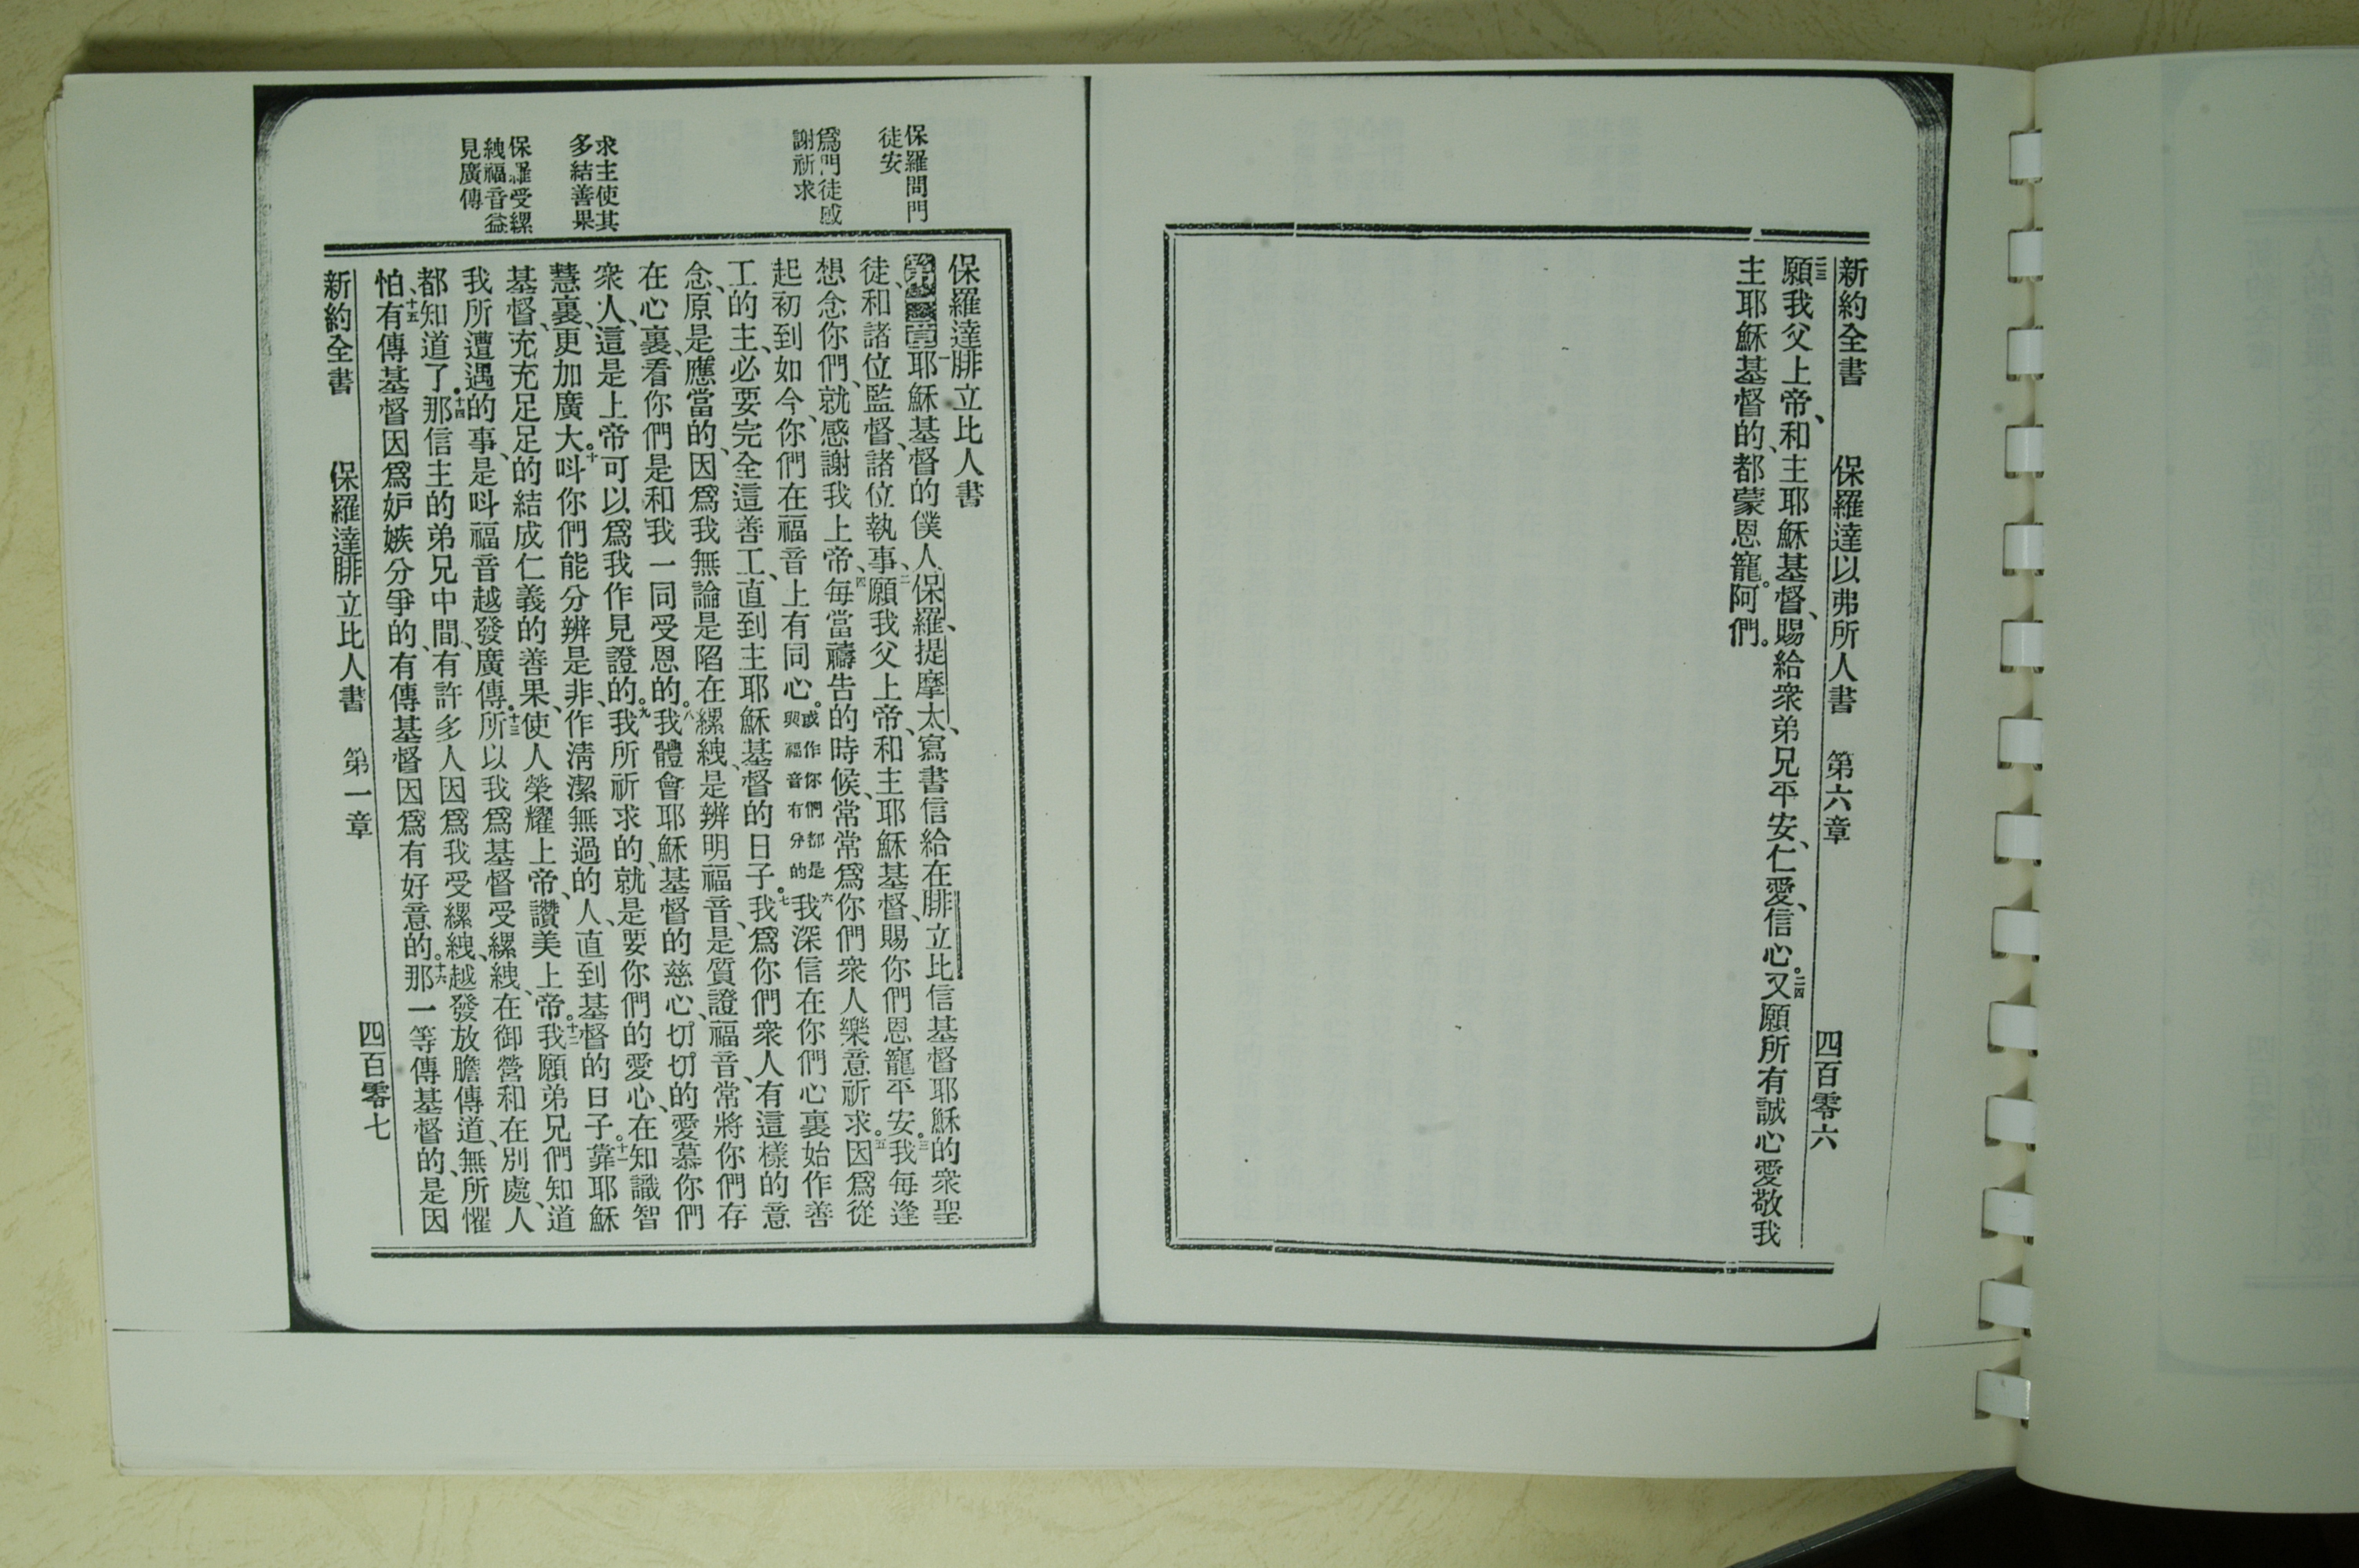 新約全書　保羅達以弗所人書　第六章　四百零六
二三願我父上帝、和主耶穌基督、賜給衆弟兄平安、仁愛、信心。二四又願所有誠心愛敬我
主耶穌基督的、都蒙恩寵。阿們。
保羅問門
徒安
爲門徒感
謝祈求
求主使其
多結善果
保羅受縲
絏福音益
見廣傳
保羅達腓立比人書
第一章一耶穌基督的僕人保羅、提摩太、寫書信給在腓立比信基督耶穌的衆聖
徒、和諸位監督、諸位執事、二願我父上帝、和主耶穌基督、賜你們恩寵平安。三我每逢
想念你們、就感謝我上帝、四每當禱告的時候、常常爲你們衆人樂意祈求。五因爲從
起初到如今、你們在福音上有同心。或作你們都是與福音有分的六我深信在你們心裏始作善
工的主、必要完全這善工、直到主耶穌基督的日子。七我爲你們衆人有這樣的意
念、原是應當的、因爲我無論是陷在縲絏、是辨明福音、是質證福音、常將你們存
在心裏、看你們是和我一同受恩的。八我體會耶穌基督的慈心、切切的愛慕你們
衆人、這是上帝可以爲我作見證的。九我所祈求的、就是要你們的愛心、在知識智
慧裏、更加廣大。十呌你們能分辨是非、作淸潔無過的人、直到基督的日子。十一靠耶穌
基督、充充足足的結成仁義的善果、使人榮耀上帝、讚美上帝。十二我願弟兄們知道
我所遭遇的事、是呌福音越發廣傳。十三所以我爲基督受縲絏、在御營和在別處、人
都知道了。十四那信主的弟兄中間、有許多人因爲我受縲絏、越發放膽傳道、無所懼
怕、十五有傳基督因爲妒嫉分爭的、有傳基督因爲有好意的。十六那一等傳基督的、是因
新約全書　保羅達腓立比人書　第一章　四百零七